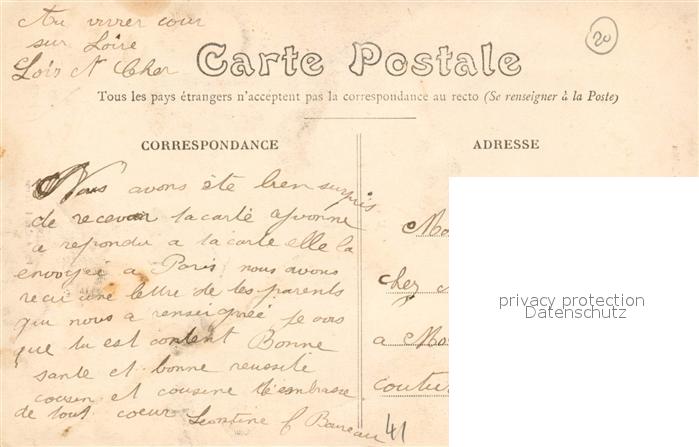 Au vivier cour
sur Loire
Loir et Cher
20
Carte Postale
Tous les pays étrangers n'acceptent pas la correspondance au recto (Se renseigner à la Poste)
CORRESPONDANCE
ADRESSE
Nous avons été bien surpris
de recevoir ta carte yvonne
a repondu a ta carte elle la
envoyée a Paris nous avons
recu une lettre de tes parents
qui nous a renseignée je vois
que tu est content Bonne
sante et bonne reussite
cousin et cousine t'embrasse
de tout coeur Leontine
41
chez
a
privacy protection
Datenschutz